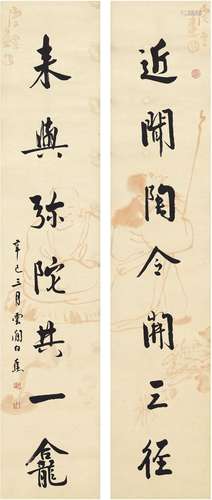 近聞陶令開三徑
來與弥陀共一龕
辛巳三月雲間白蕉